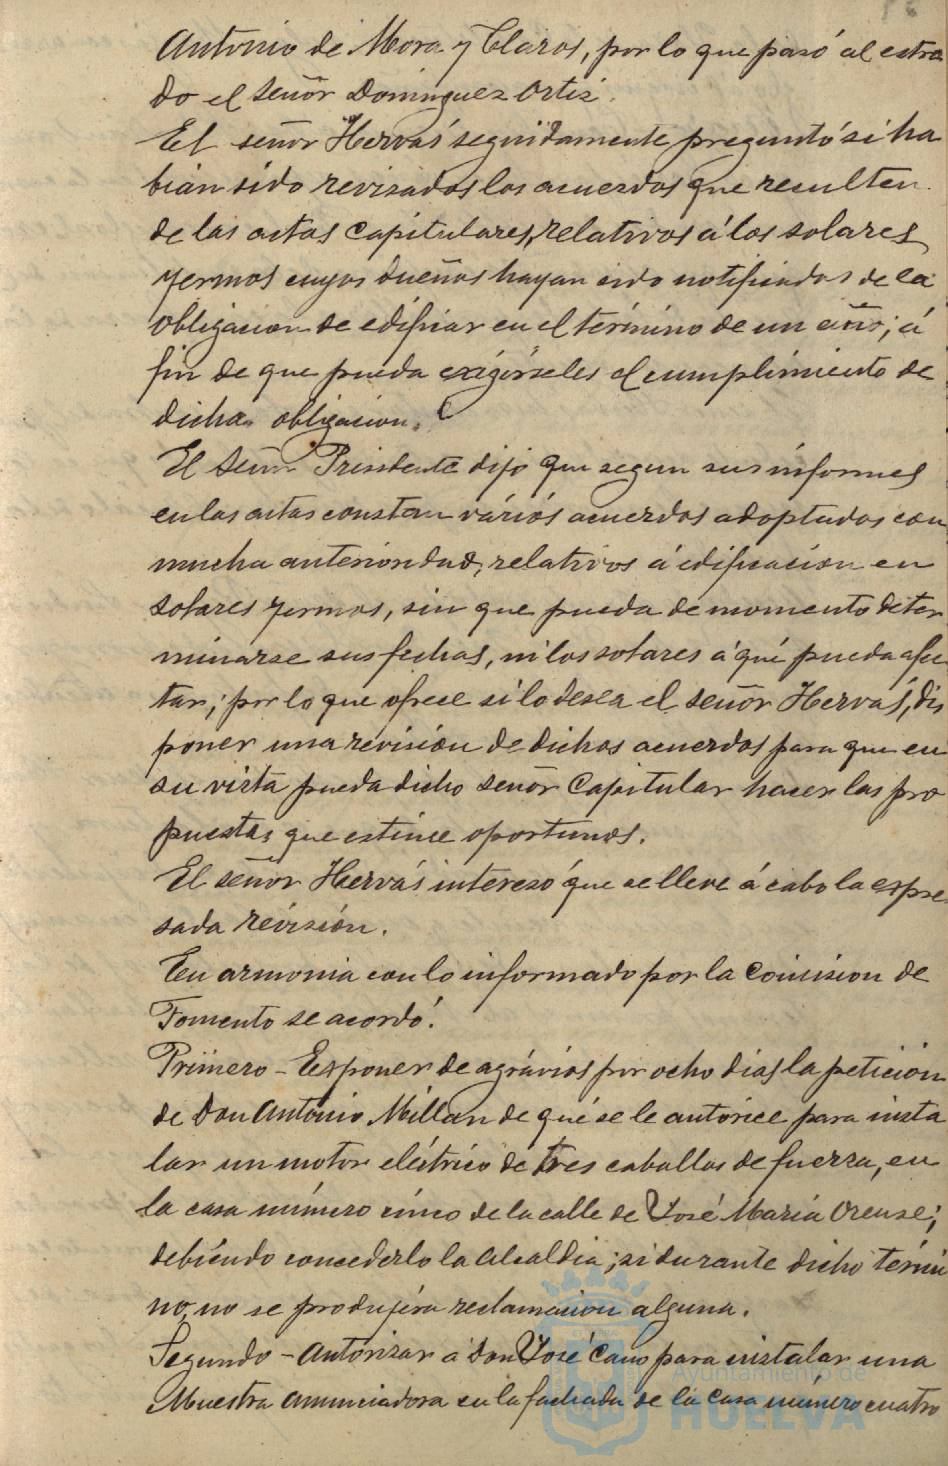 Antonio de Mora y Claros, por lo que pasó al estra
do el Señor Dominguez Ortiz.
El señor Hervás seguidamente preguntó si ha
bian sido revisados los acuerdos que resulten
de las actas capitulares, relativos á los solares
yermos cuyos dueños hayan sido notificados de la
obligacion de edificar en el término de un año; á
fin de que pueda exigirseles el cumplimiento de
dicha obligacion.
El Señor Presidente dijo que segun sus informes
en las actas constan varios acuerdos adoptados con
mucha anterioridad, relativos á edificacion en
solares yermos, sin que pueda de momento deter
minarse sus fechas, ni los solares á qué pueda afec
tar; por lo que ofrece si lo desea el señor Hervás, dis
poner una revisión de dichos acuerdos para que en
su vista pueda dicho señor Capitular hacer las pro
puestas que estime oportunos.
El señor Hervás interesó que se lleve á cabo la expre
sada revisión.
En armonia con lo informado por la Comision de
Fomento se acordó.
Primero - Exponer de agravios por ocho dias la petición
de Don Antonio Millan de qué se le autorice para insta
lar un motor eléctrico de tres caballos de fuerza, en
la casa número cinco de la calle de José Maria Orense;
debiendo concederlo la Alcaldia; si durante dicho térmi
no, no se produjera reclamacion alguna.
Segundo - Autorizar á Don José Cano para instalar una
Muestra anunciadora en la fachada de la casa número cuatro
Ayuntamiento de
HUELVA